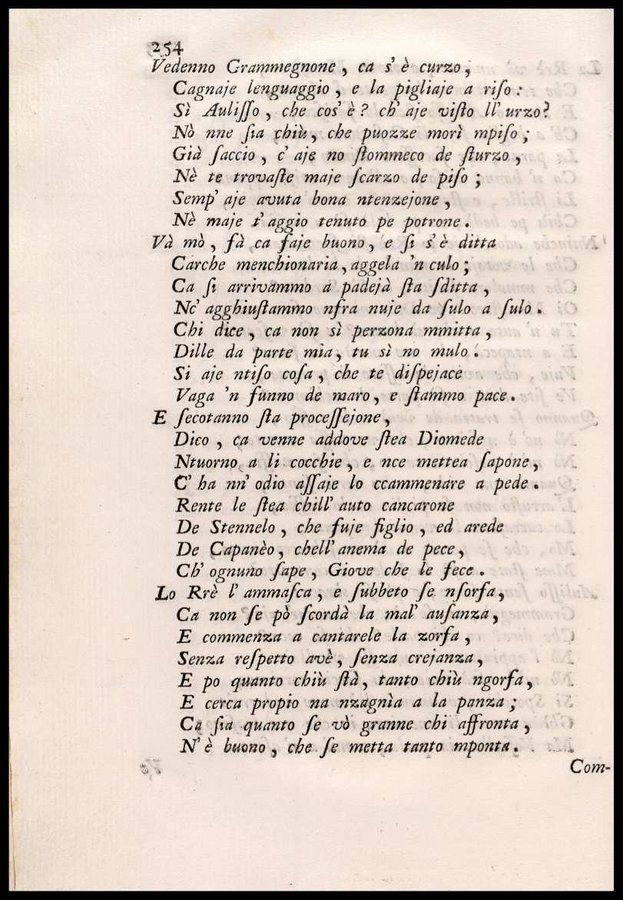 254
Vedenno Grammegnone, ca s'è curzo,
Cagnaje lenguaggio, e la pigliaje a riſo:
Sì Auliſſo, che cos'è? ch' aje viſto ll' urzo?
Nò nne ſia chiù, che puozze morì mpiſo;
Già ſaccio, c' aje no ſtommeco de ſturzo,
Nè te trovaſte maje ſcarzo de piſo;
Semp' aje avuta bona ntenzejone,
Nè maje t' aggio tenuto pe potrone.
Và mò, fà ca faje buono, e ſi s'è ditta
Carche menchionaria, aggela 'n culo;
Ca ſi arrivammo a padejà ſta ſditta,
Nc' agghiuſtammo nfra nuje da ſulo a ſulo.
Chi dice, ca non sì perzona mmitta,
Dille da parte mia, tu sì no mulo.
Si aje ntiſo coſa, che te diſpejace
Vaga 'n funno de maro, e ſtammo pace.
E ſecotanno ſta proceſſejone,
Dico, ca venne addove ſtea Diomede
Ntuorno a li cocchie, e nce mettea ſapone,
C' ha nn' odio aſſaje lo ccammenare a pede.
Rente le ſtea chill' auto cancarone
De Stennelo, che fuje figlio, ed arede
De Capanèo, chell' anema de pece,
Ch' ognuno ſape, Giove che le fece.
Lo Rrè l' ammaſca, e ſubbeto ſe nſorfa,
Ca non ſe pò ſcordà la mal' auſanza,
E commenza a cantarele la zorfa,
Senza reſpetto avè, ſenza crejanza,
E po quanto chiù ſtà, tanto chiù ngorfa,
E cerca propio na nzagnìa a la panza;
Ca ſia quanto ſe vò granne chi affronta,
N' è buono, che ſe metta tanto mponta.
Com-